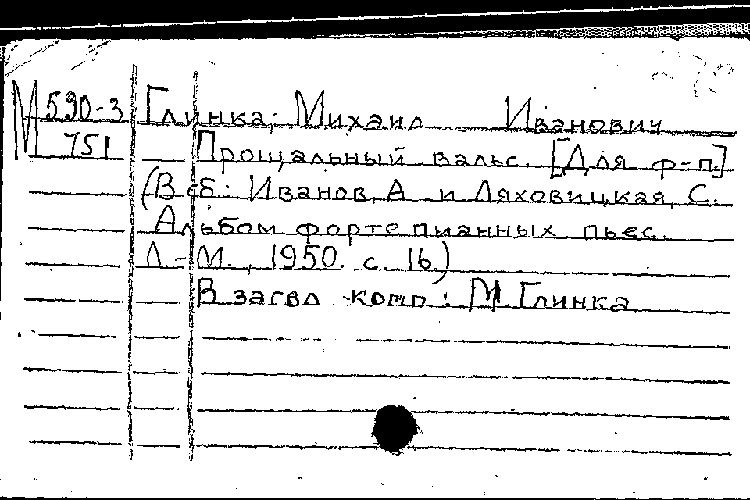 М 590-3 Глинка, Михаил Иванович
751 Прощальный вальс. [Для ф-п.]
(В сб.: Иванов, А и Ляховицкая, С.
Альбом фортепианных пьес.
Л-М., 1950. с. 16)
В загвл комп: М Глинка